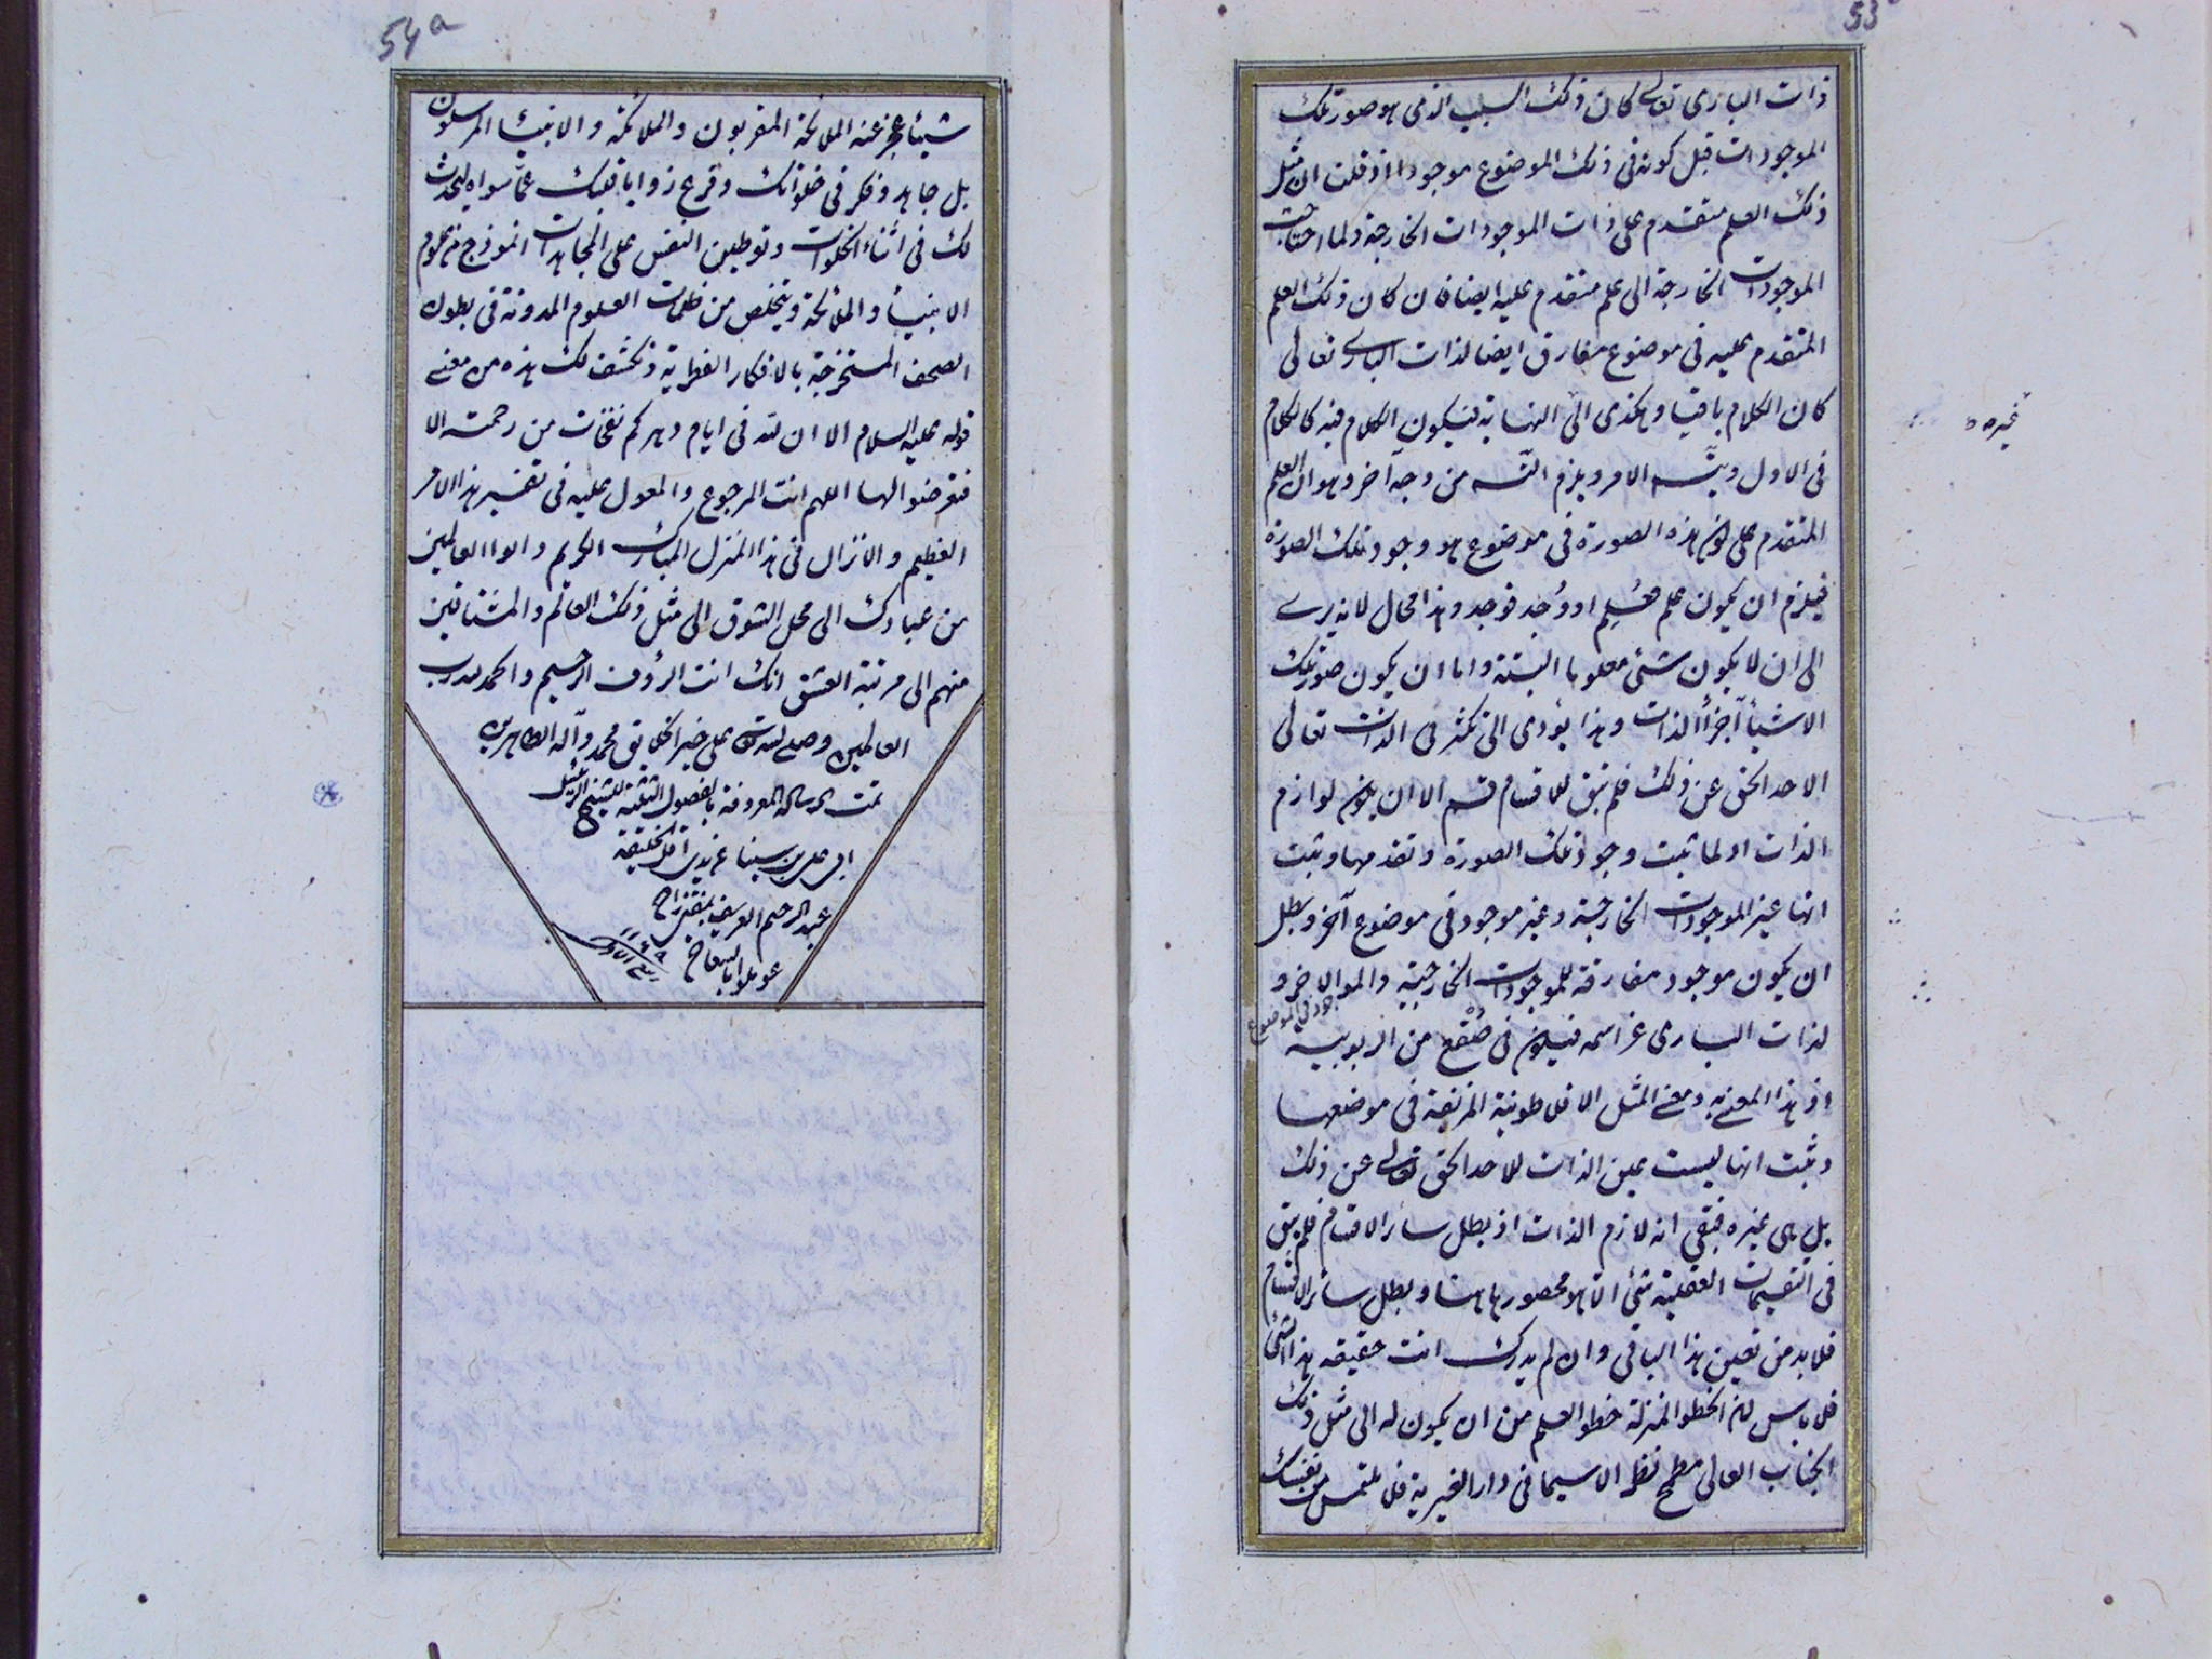 53
ذات الباری تعالی کان ذلک السبب الذی هو صورة تلک
الموجودات قبل کونه فی ذلک الموضوع موجودا اذ قلت ان مثل
ذلک العلم متقدم علی ذات الموجودات الخارجة ولما احتاجت
الموجودات الخارجة الی علم متقدم علیه ایضا فان کان ذلک العلم
المتقدم علیه فی موضوع مفارق ایضا لذات الباری تعالی
کان الکلام باقیا و هکذی الی النهایة فیکون الکلام فیه کالکلام
فی الاول و یتسـ الامر و یلزم التسـ من وجه آخر و هو ان العلم
المتقدم علی کون هذه الصورة فی موضوع هو وجود تلک الصورة
فیلزم ان یکون علم فعُلِم او وُجد فوجد و هذا محال لانه یری
الی ان لا یکون شیء معلوما البتة و اما ان یکون صورة تلک
الاشیاء اجزاء الذات و هذا یؤدی الی تکثر فی الذات تعالی
الاحد الحق عن ذلک فلم تبق للاقسام قسم الا ان یکون لوازم
الذات اولما ثبت وجود تلک الصورة و تقدمها و ثبت
انها غیر الموجودات الخارجیة و غیر موجود فی موضوع آخر و بطل
ان یکون موجود مفارقة للموجودات الخارجیة و الموالاخر و
جود فی الموضوع
لذات الباری عز اسمه فیکون فی صُقع من الربوبیه
اذ هذا المعنی به و معنی المثل الافلاطونیة المزیفة فی موضعها
و ثبت انها لیست عین الذات للاحد الحق تعالی عن ذلک
بل هی غیره فبقی انه لازم الذات اذ بطل سائر الاقسام فلم یبق
فی التقسیمات العقلیة شیء الا هو محصور هاهنا و بطل سائر الاقسام
فلا بد من تعین هذا الباقی و ان لم یدرک انت حقیقه هذا الشیء
فلا باس لان الخطو المنزلة خطو العلم من ان یکون له الی مثل ذلک
الجناب العالی مطمح نظر لاسیما فی دار الغیریة فلا تلتمس من نفسک
غیره
54a
شیئا عجز عنه الملائکة المقربون و الملائکة و الانبیاء المرسلون
بل جاهد و فکر فی خلواتک و فرع زوایا قلبک عما سواه لیحدث
لک فی اثناء الخلوات و توطین النفس علی المجاهدات انموذج من علوم
الانبیاء و الملائکة و یتخلص من ظلمات العلوم المدونة فی بطون
الصحف المستخرجة بالافکار الفطریة و نکشف لک هذه من معنی
قوله علیه السلام الا ان لله فی ایام دهرکم نفحات من رحمته الا
فتعرضوا لها اللهم انت المرجوع و المعول علیه فی تفسیر هذا الامر
العظیم و الانزال فی هذا المنزل المبارک الکریم و الوا العالمین
من عبادک الی محل الشوق الی مثل ذلک العالم و المشتاقین
منهم الی مرتبة العشق انک انت الرؤف الرحیم و الحمد لله رب
العالمین و صلی الله علی خیر الخلایق محمد و آله الطاهرین
تمت الرسالة المعروفة بالفصول الثلثة للشیخ الرئیس
ابی علی بن سینا علی یدی اقل الخلیقة
عبد الرحیم